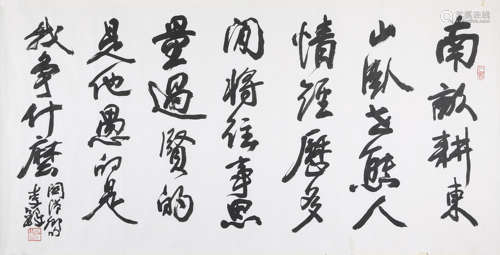 南畝耕東
山臥世態人
情經歷多
閒將往事思
量過賢的
是他愚的是
我争什麼